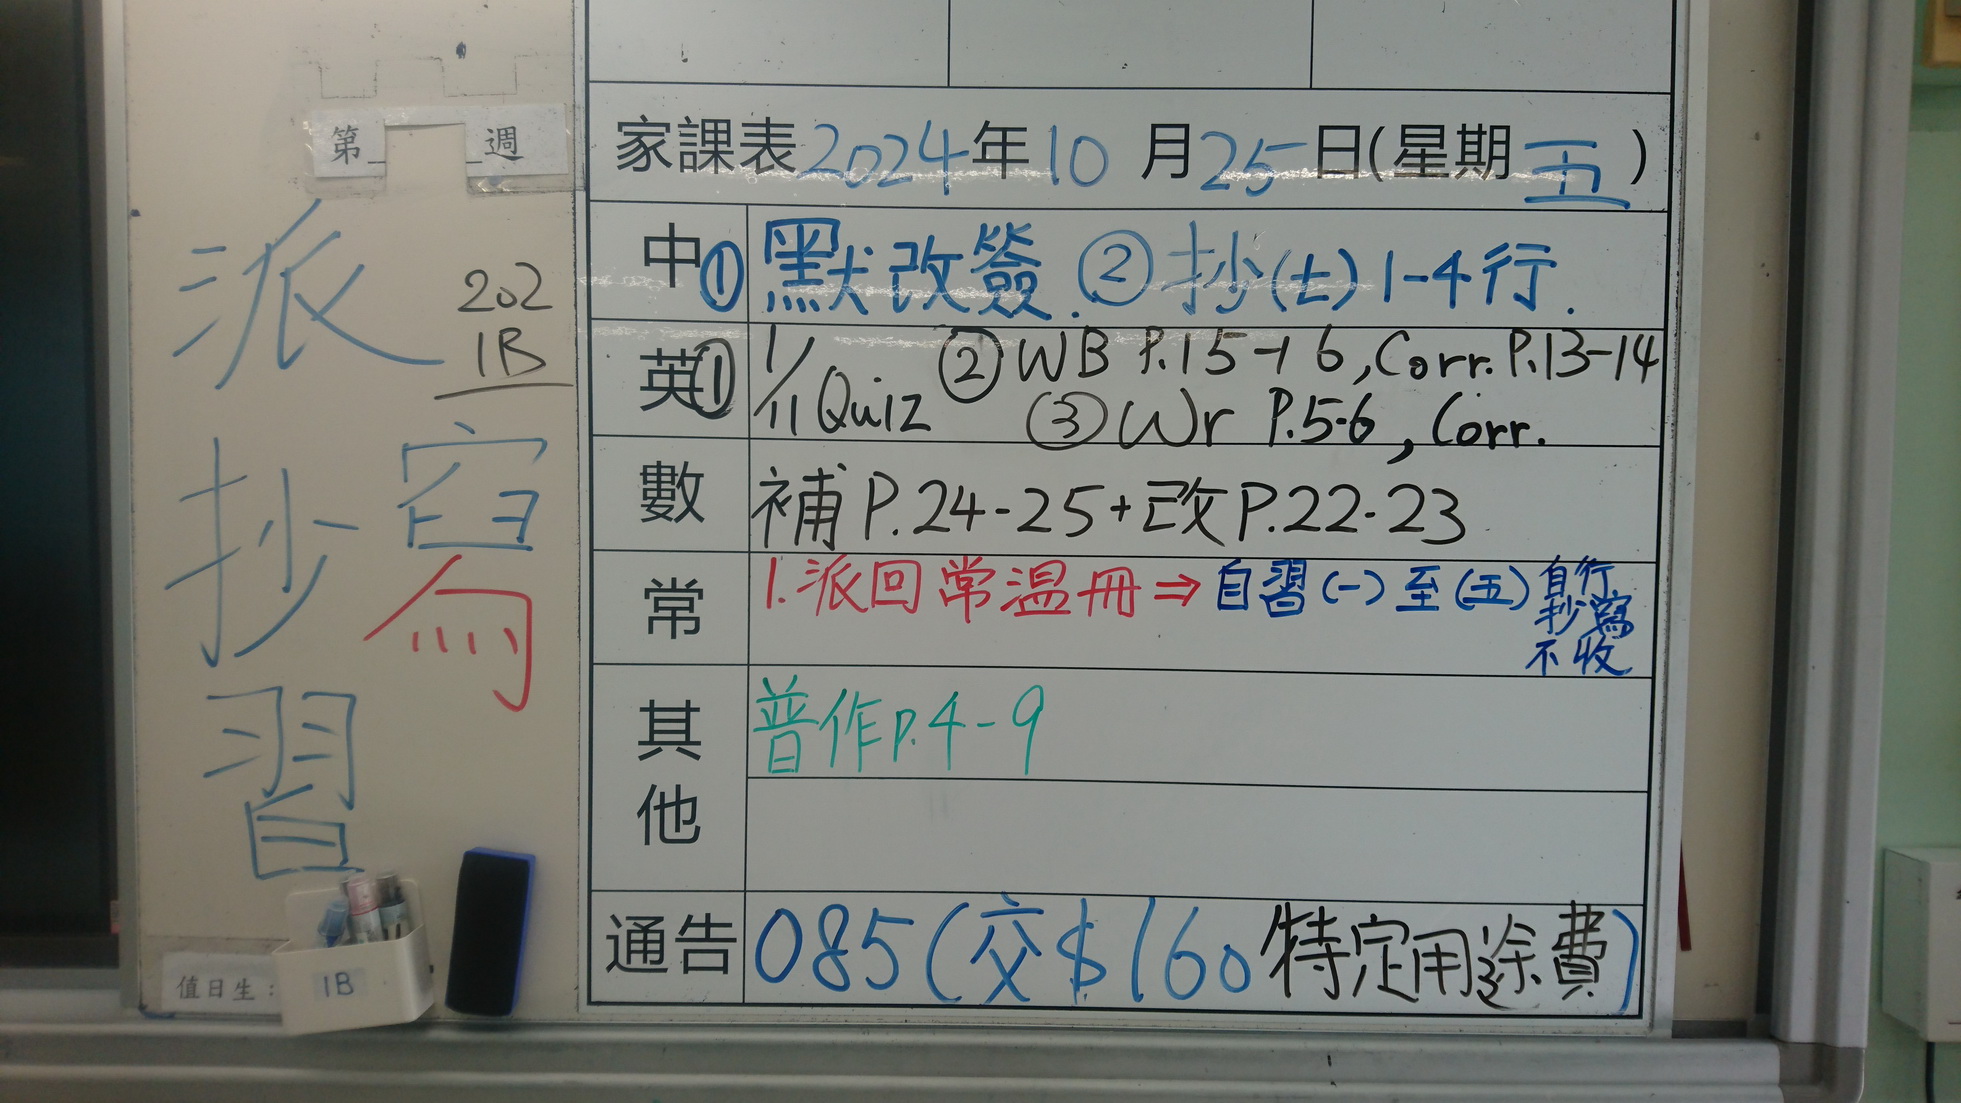 第_ _週
202
1B
派
抄寫
習
家課表2024年10月25日(星期五)
中 ①默改簽. ②抄(七)1-4行.
英 ①1/11 Quiz ②WB P.15-16, Corr. P.13-14
③Wr P.5-6, Corr.
數 補P.24-25+改P.22-23
常 1.派回常溫冊⇒自習(一)至(五)自行
抄寫
不收
其他 普作P.4-9
通告 085(交$160特定用途費)
值日生:
1B